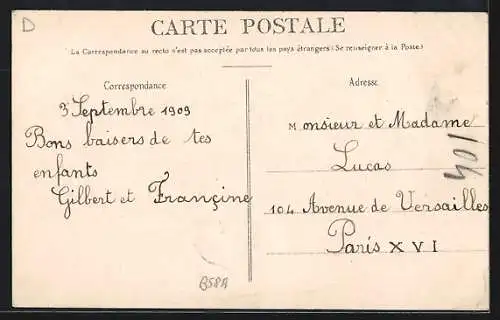 D
CARTE POSTALE
La Correspondance au recto n'est pas acceptée par tous les pays étrangers (Se renseigner à la Poste)
Correspondance
3 Septembre 1909
Bons baisers de tes
enfants
Gilbert et Françine
Adresse
Monsieur et Madame
Lucas
104 Avenue de Versailles
Paris XVI
B58A